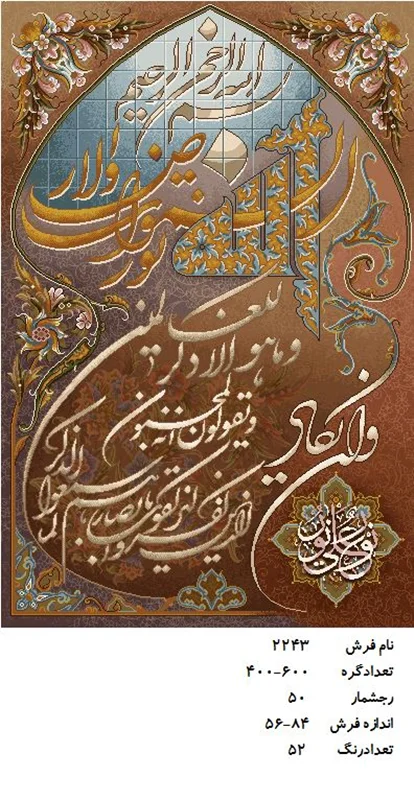 بسم الله الرحمن الرحیم
الله نور السموات والارض
وان یکاد
الذین کفروا لیزلقونک بابصارهم
لما سمعوا الذکر
ویقولون انه لمجنون
وما هو الا ذکر للعالمین
نور علی نور
نام فرش ۲۲۴۳
تعدادگره ۶۰۰-۴۰۰
رجشمار ۵۰
اندازه فرش ۸۴-۵۶
تعدادرنگ ۵۲